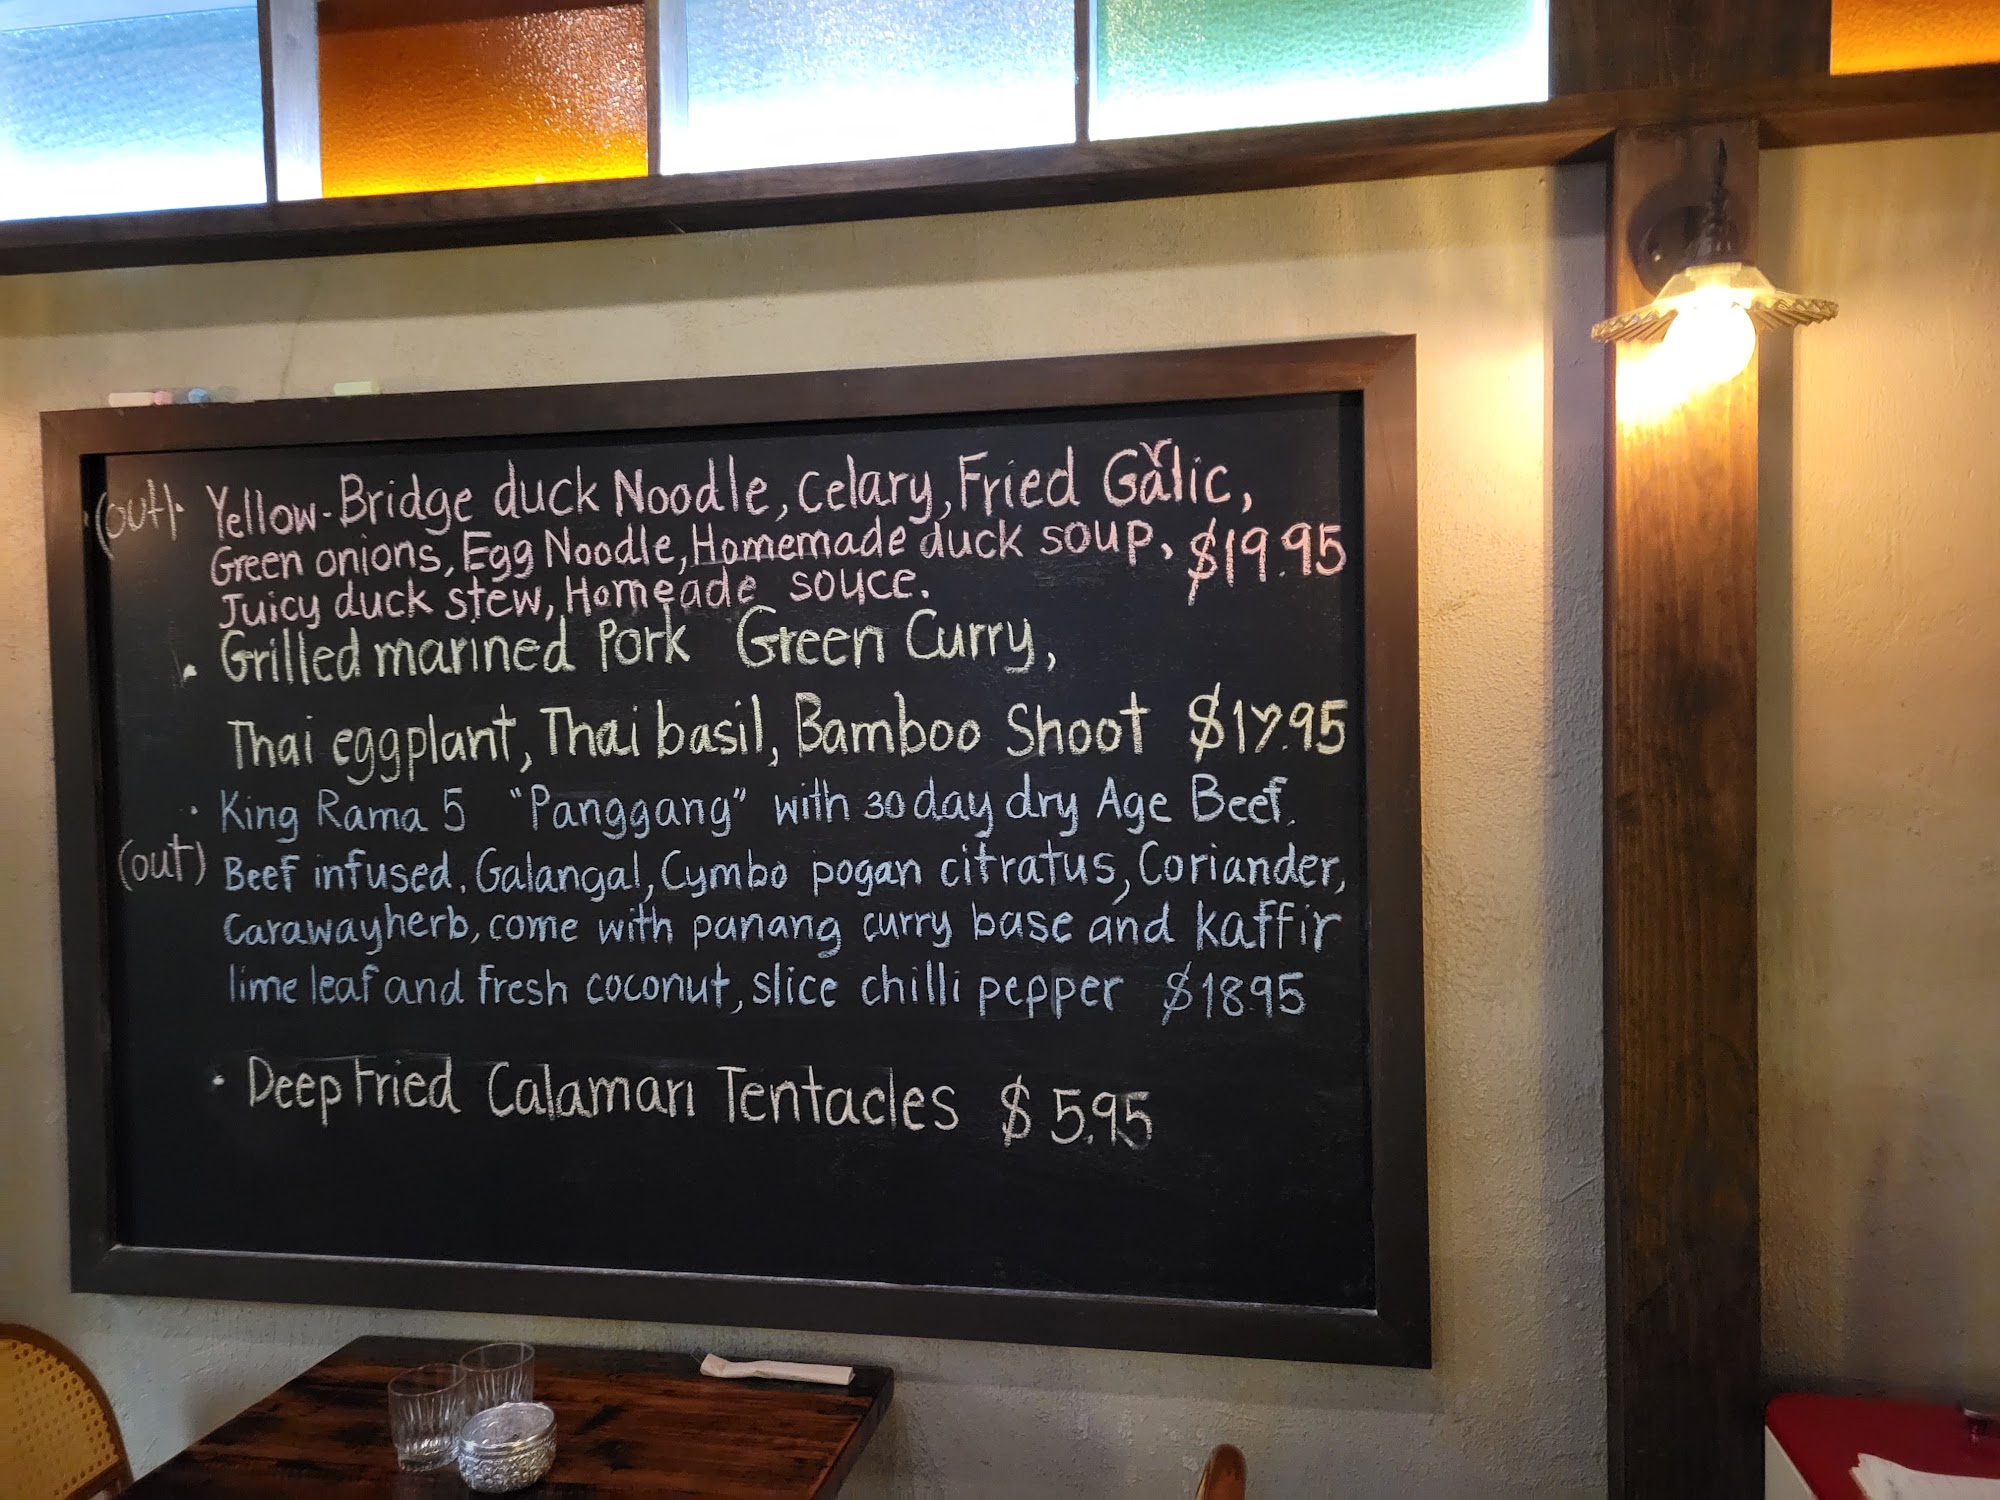 (out). Yellow-Bridge duck Noodle, celary, Fried Garlic,
Green onions, Egg Noodle, Homemade duck soup, $19.95
Juicy duck stew, Homeade souce.
• Grilled marined Pork Green Curry,
Thai eggplant, Thai basil, Bamboo Shoot $17.95
• King Rama 5 "Panggang" with 30 day dry Age Beef.
(out) Beef infused, Galangal, Cymbo pogan citratus, Coriander,
Carawayherb, come with panang curry base and kaffir
lime leaf and fresh coconut, slice chilli pepper $18.95
• Deep Fried Calamari Tentacles $5.95